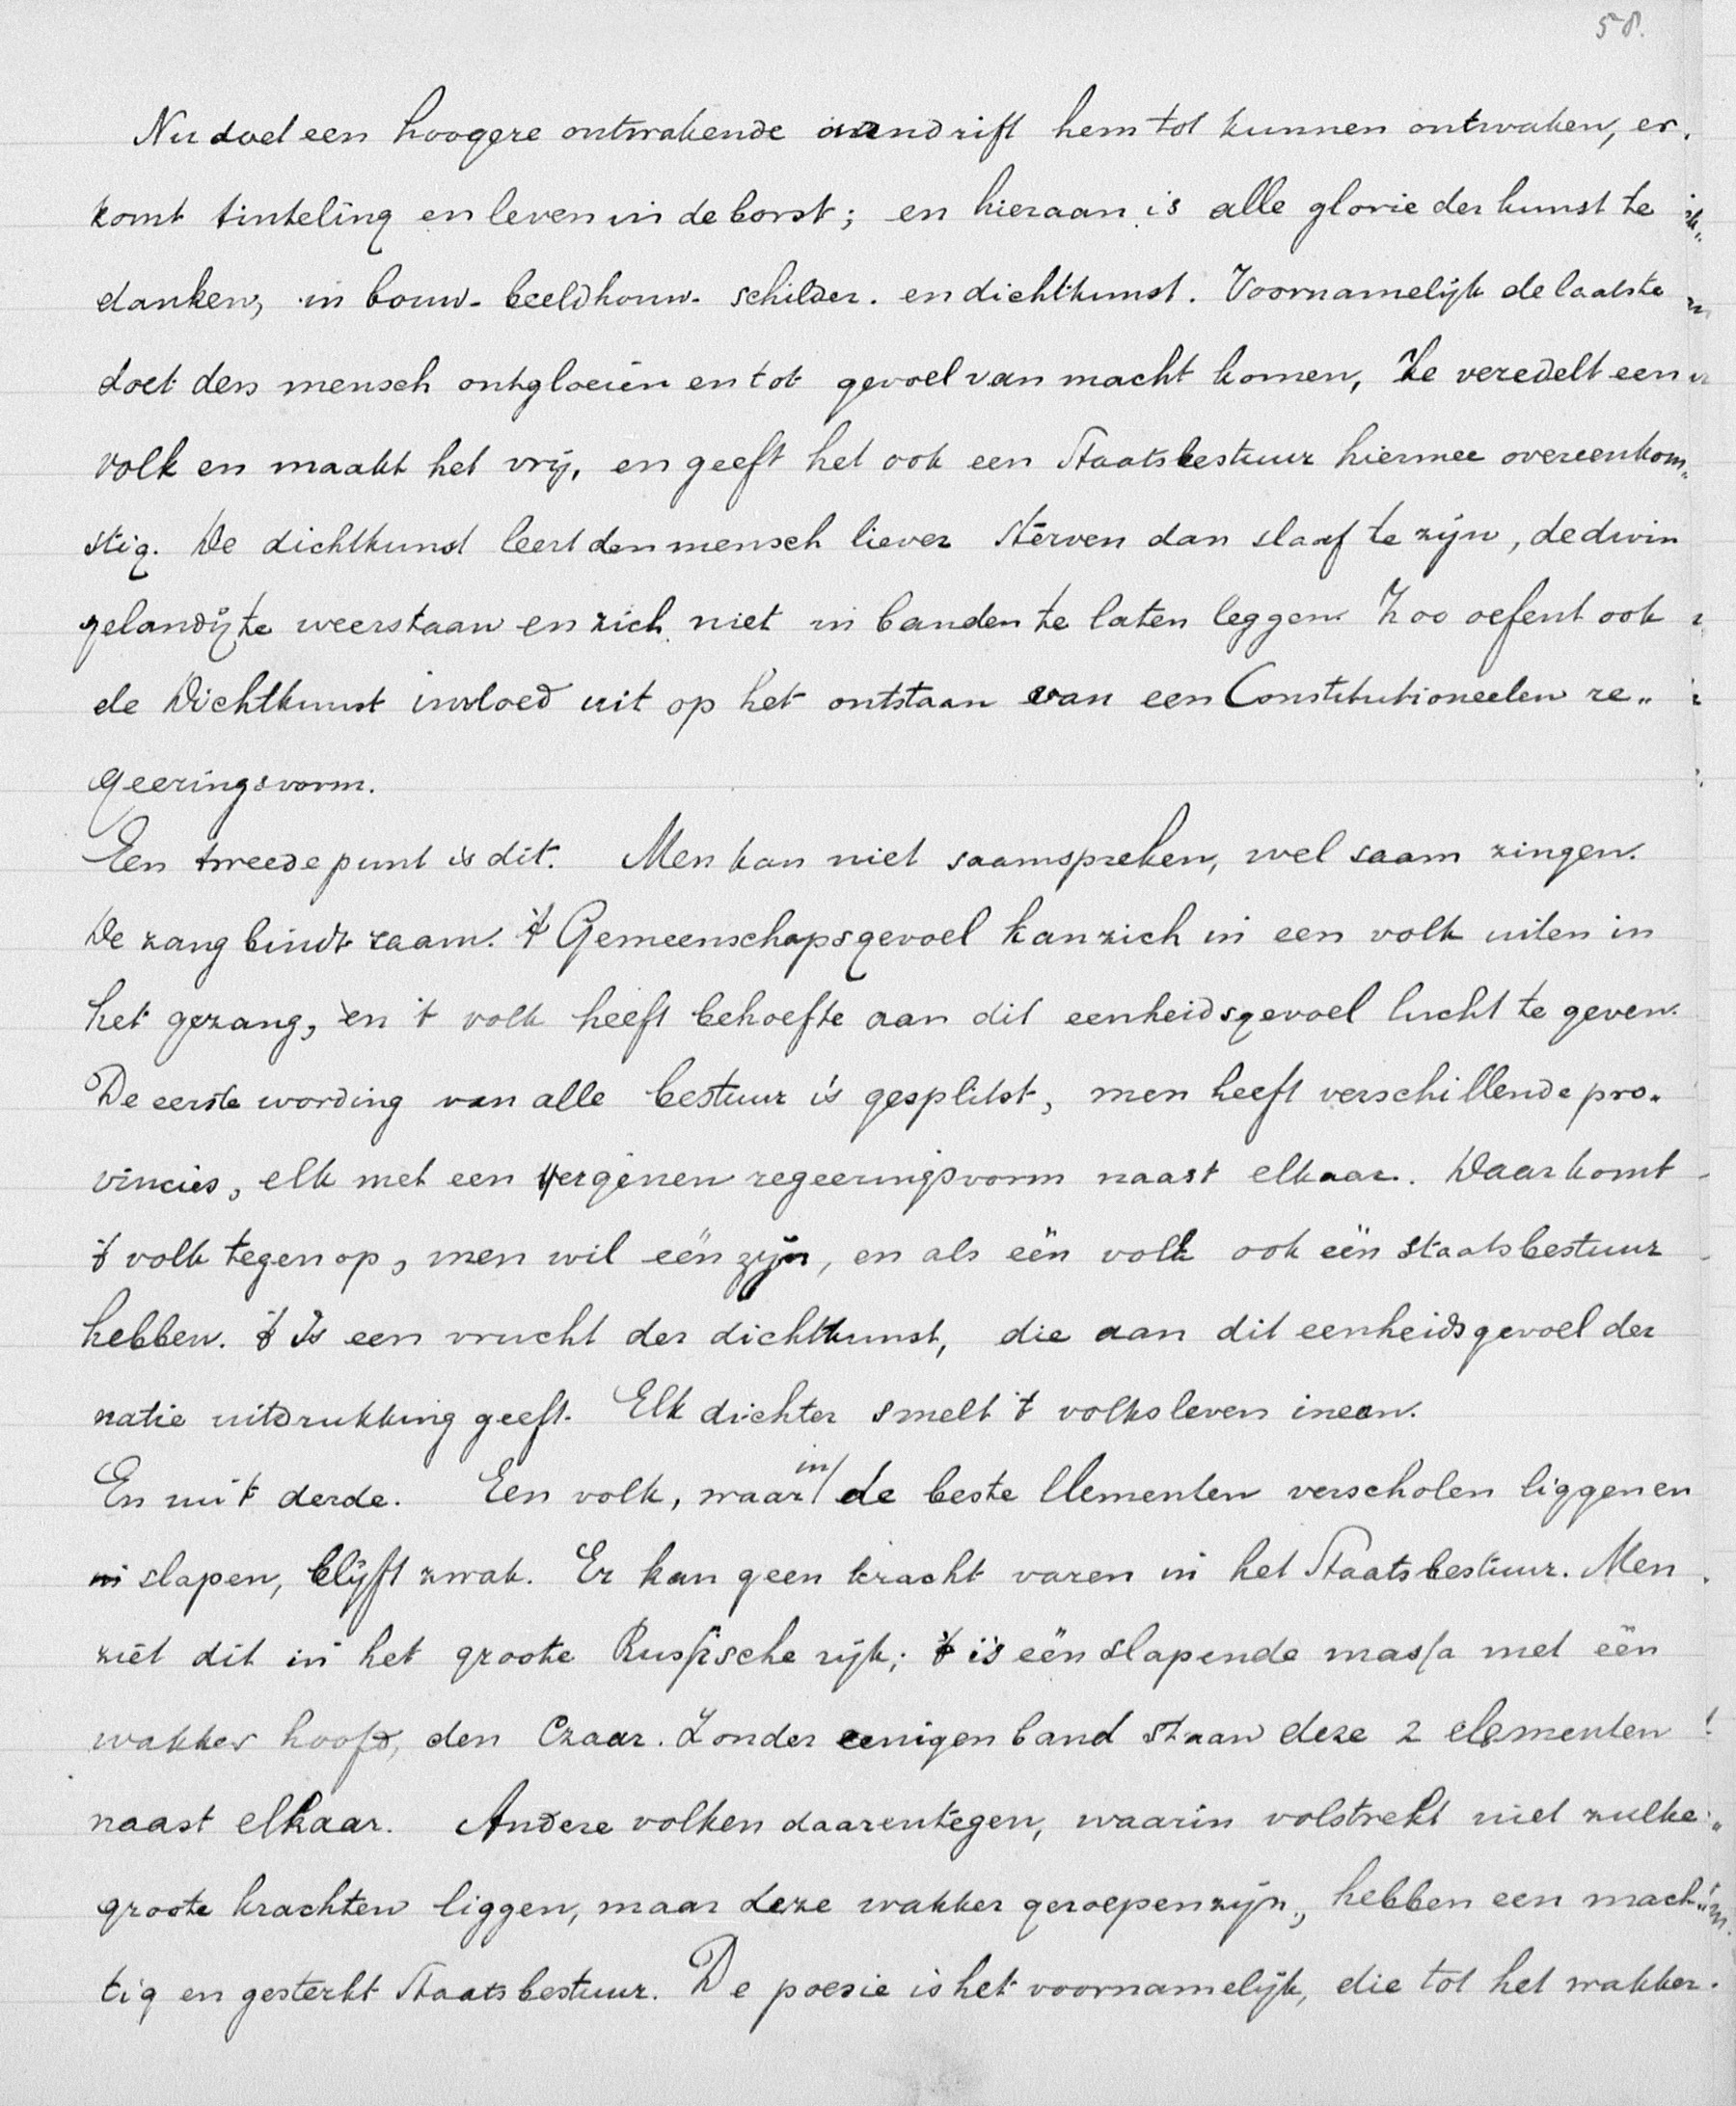 58.
Nu doet een hoogere ontwakende aandrift hem tot kunnen ontwaken, er
komt tinteling en leven in de borst; en hieraan is alle glorie der kunst te
danken, in bouw- beeldhouw- schilder- en dichtkunst. Voornamelijk de laatste
doet den mensch ontgloeien en tot gevoel van macht komen, Ze veredelt een
volk en maakt het vrij, en geeft het ook een Staatsbestuur hiermee overeenkom„
stig. De dichtkunst leert den mensch liever sterven dan slaaf te zijn, de dwin
gelandij te weerstaan en zich niet in banden te laten leggen. Zoo oefent ook
de Dichtkunst invloed uit op het ontstaan van een Constitutioneelen re„
geeringsvorm.
Een tweede punt is dit. Men kan niet saamspreken, wel saam zingen.
De zang bindt zaam. 't Gemeenschapsgevoel kan zich in een volk uiten in
het gezang, en 't volk heeft behoefte aan dit eenheidsgevoel lucht te geven.
De eerste wording van alle bestuur is gesplitst, men heeft verschillende pro„
vincies, elk met een eigenen regeeringsvorm naast elkaar. Daar komt
't volk tegen op, men wil één zijn, en als één volk ook één staatsbestuur
hebben. 't Is een vrucht der dichtkunst, die aan dit eenheidsgevoel der
natie uitdrukking geeft. Elk dichter smelt 't volksleven ineen.
En nu 't derde. Een volk, waarin de beste elementen verscholen liggen en
slapen, blijft zwak. Er kan geen kracht varen in het Staatsbestuur. Men
ziet dit in het groote Russische rijk; 't is één slapende massa met één
wakker hoofd, den Czaar. Zonder eenigen band staan deze 2 elementen
naast elkaar. Andere volken daarentegen, waarin volstrekt niet zulke
groote krachten liggen, maar deze wakker geroepen zijn, hebben een mach„
tig en gesterkt Staatsbestuur. De poesie is het voornamelijk, die tot het wakker